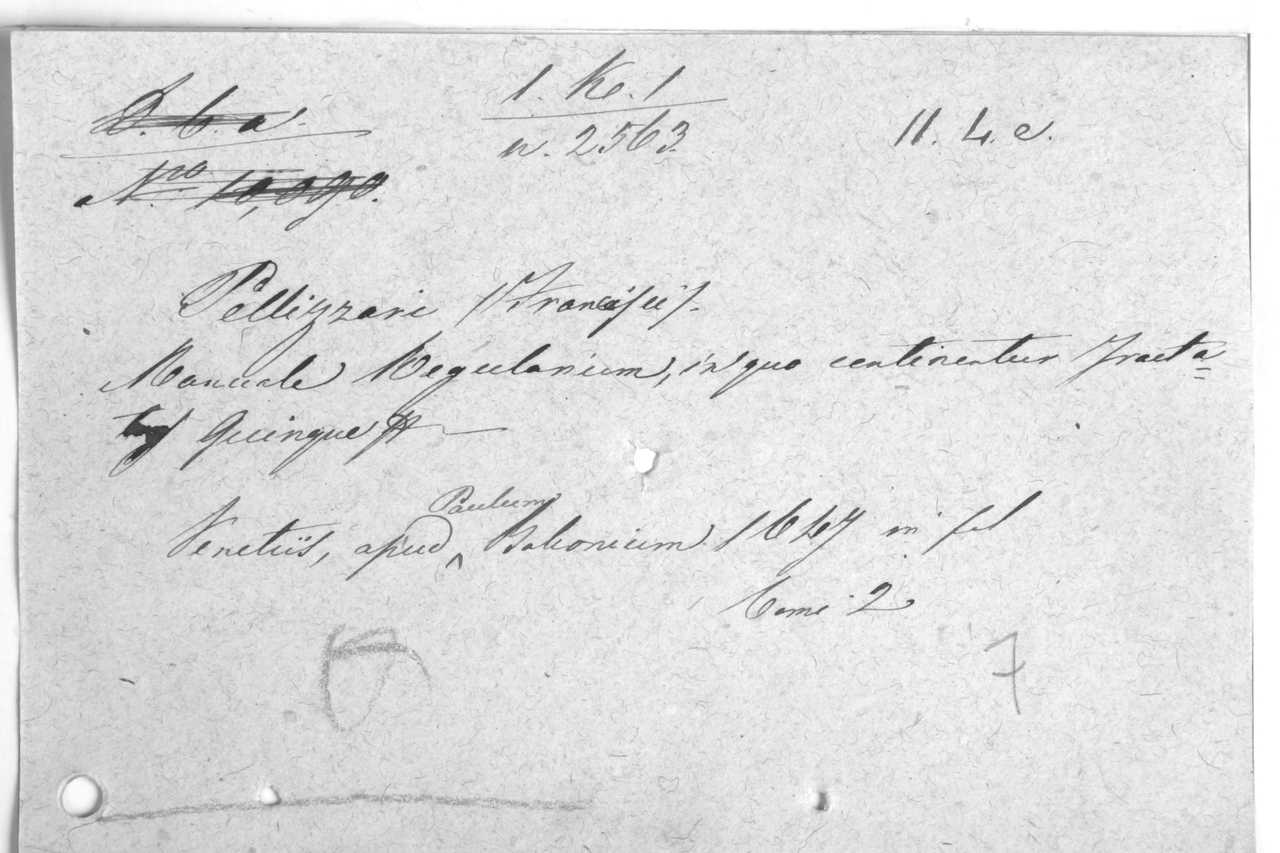 D. b. a.
1. Ke. 1
n. 2563.
11. 4. e.
Nro 10,090.
Pellizzari /: Francisci /.
Manuale Regularium, in quo continentur Tracta=
tus Quinque
Venetiis, apud Paulum Balionium 1647 in fol
Tomi 2
7